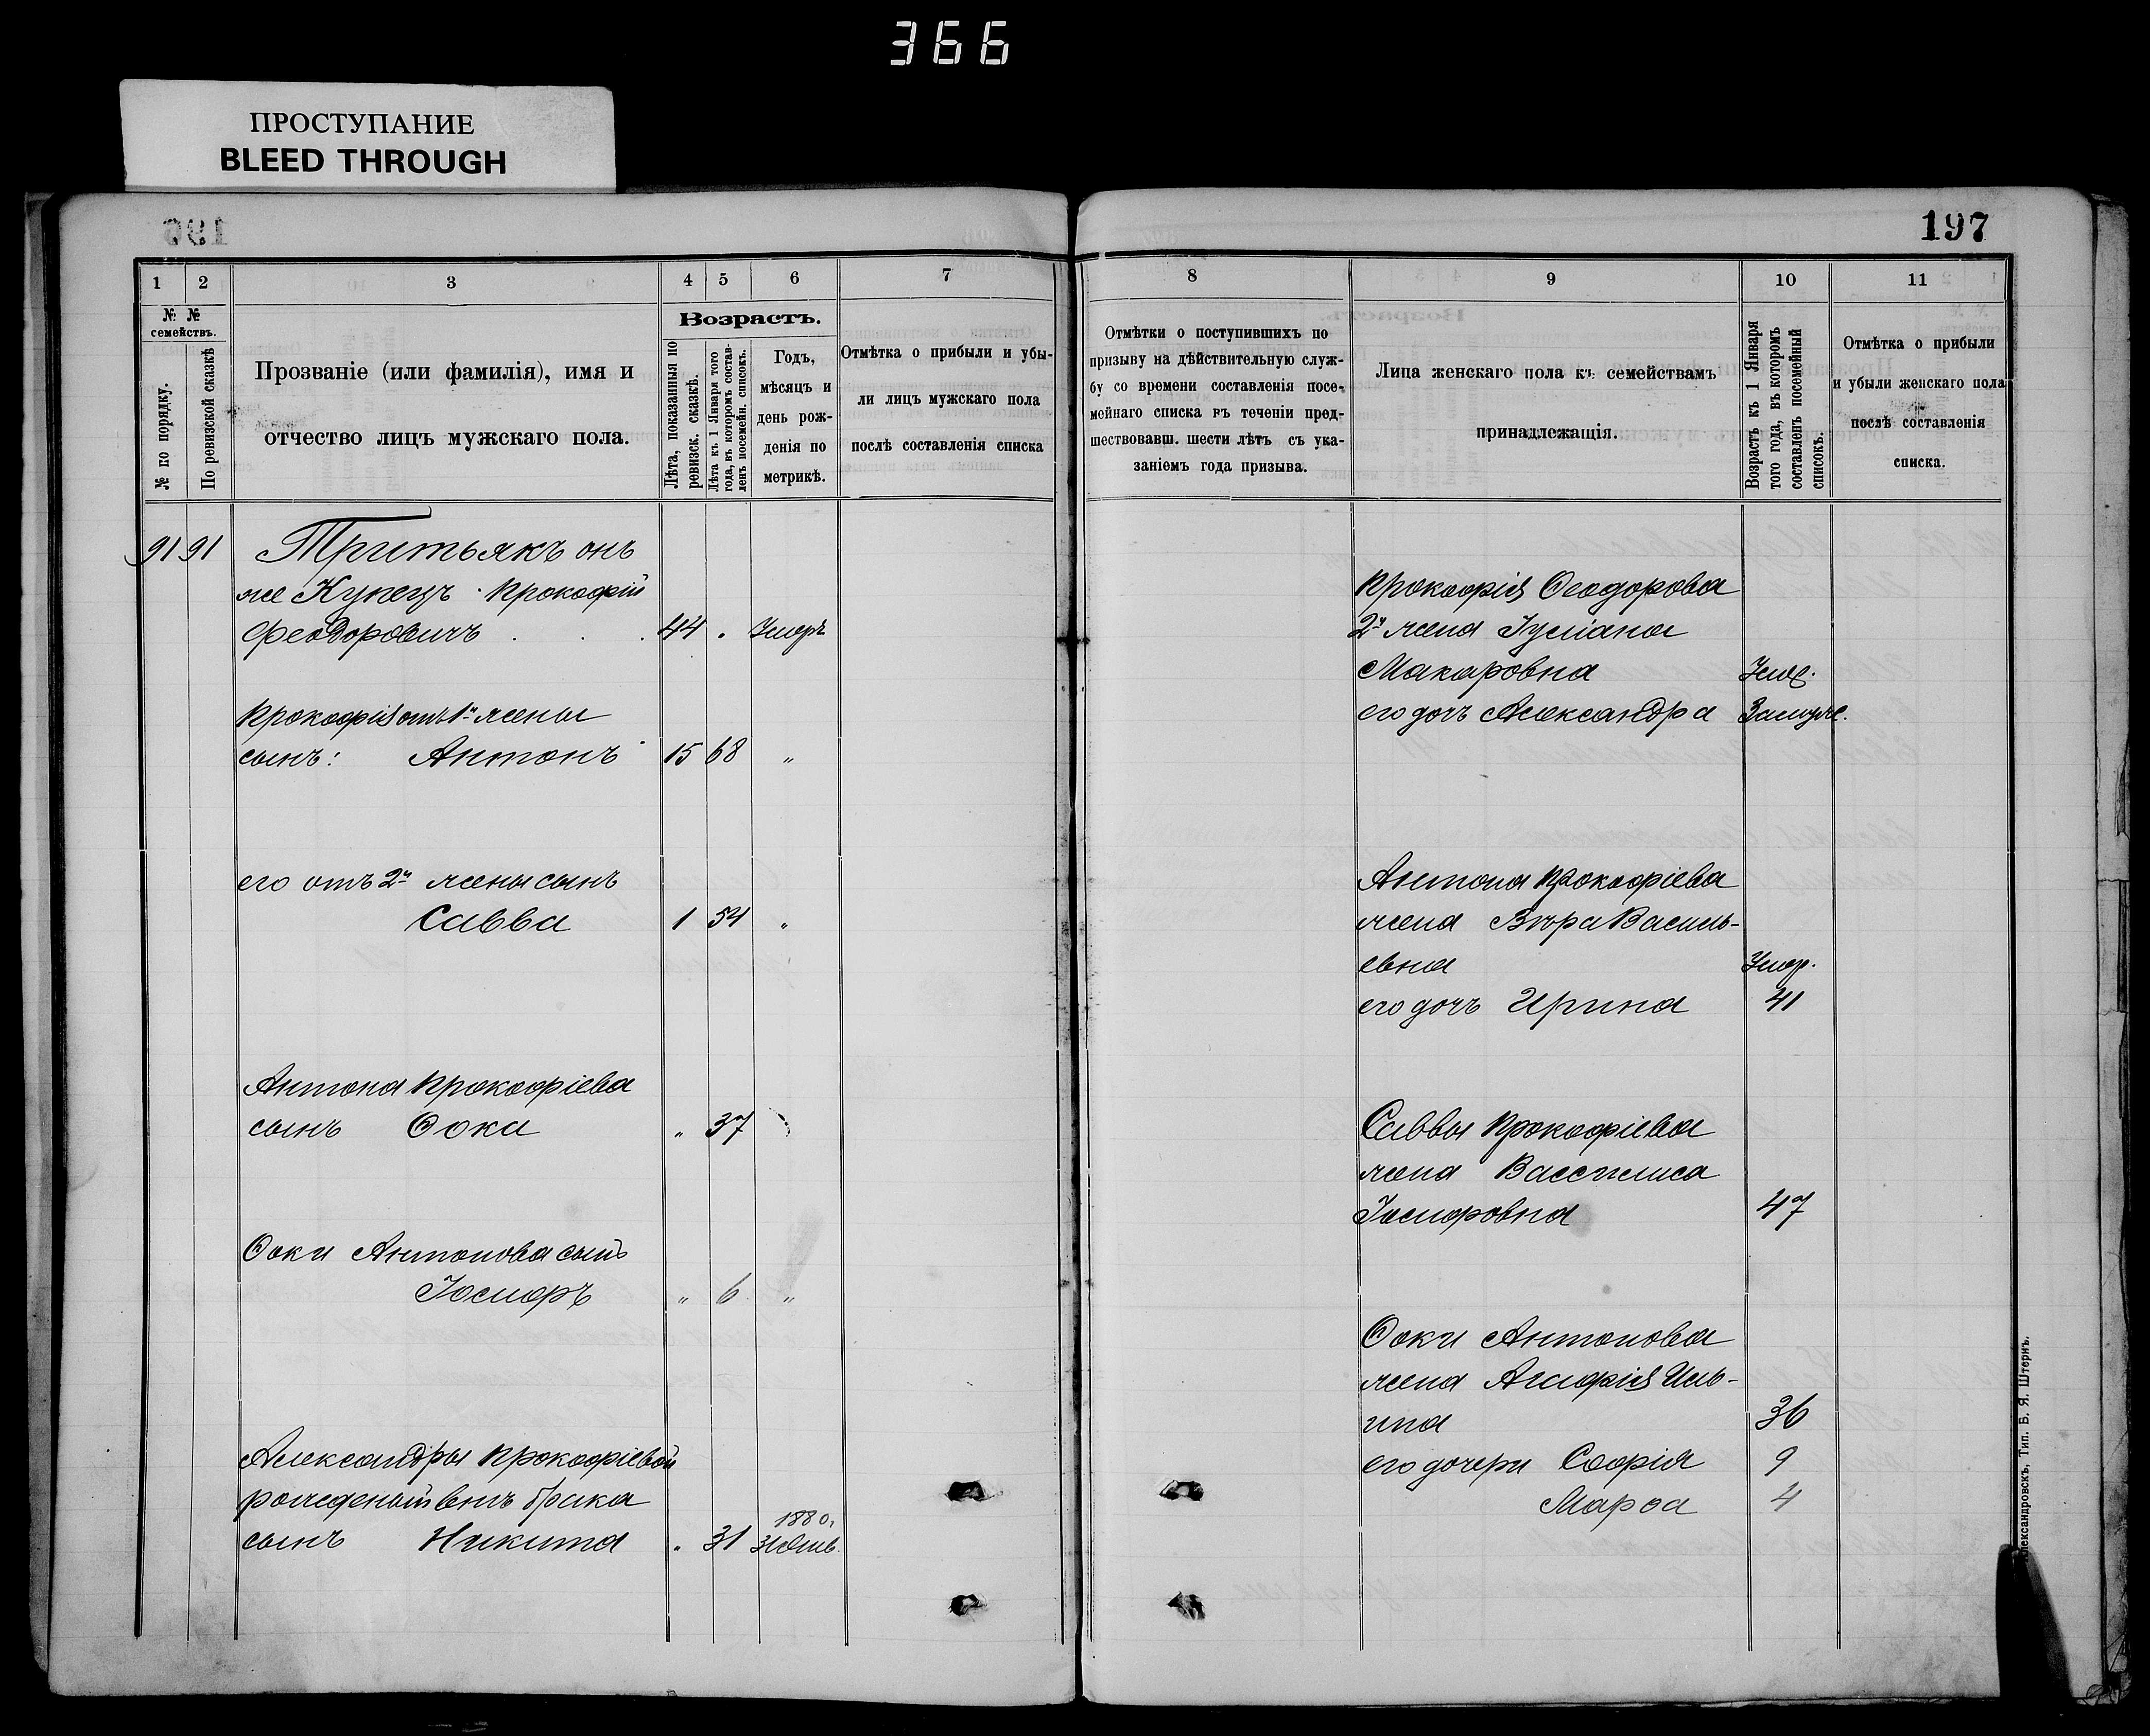 366
ПРОСТУПАНИЕ
BLEED THROUGH
196
197
1
2
3
4
5
6
7
8
9
10
11
№ №
семействъ.
№ по порядку.
По ревизской сказкѣ
Прозваніе (или фамилія), имя и
отчество лицъ мужскаго пола.
Возрастъ.
Лѣта, показанныя по
ревизск. сказкѣ.
Лѣта къ 1 Января того
года, въ которомъ состав-
ленъ посемейн. списокъ.
Годъ,
мѣсяцъ и
день рож-
денія по
метрикѣ.
Отмѣтка о прибыли и убы-
ли лицъ мужскаго пола
послѣ составленія списка
Отмѣтки о поступившихъ по
призыву на дѣйствительную служ-
бу со времени составленія посе-
мейнаго списка въ теченіи пред-
шествовавш. шести лѣтъ съ ука-
заніемъ года призыва.
Лица женскаго пола къ семействамъ
принадлежащія.
Возрастъ къ 1 Января
того года, въ которомъ
составленъ посемейный
списокъ.
Отмѣтка о прибыли
и убыли женскаго пола
послѣ составленія
списка.
91 91 Притьякъ онъ
же Купецъ Прокофій
Феодоровичъ . . . 44 " Умеръ
Прокофія отъ 1й жены
сынъ: Антонъ 15 68 "
его отъ 2й жены сынъ
Савва 1 54 "
Антона Прокофіева
сынъ Ѳока " 37 "
Ѳоки Антонова сынъ
Іосифъ " 6 "
Александры Прокофіевой
рожденый внѣ брака
1880.
сынъ Никита " 31 31 Янв.
Прокофія Ѳеодорова
2я жена Іуліана
Макаровна Умер.
его дочь Александра Замуж.
Антона Прокофіева
жена Вѣра Василь-
евна Умер.
его дочь Ирина 41
Саввы Прокофіева
жена Вассилиса
Іосифовна 47
Ѳоки Антонова
жена Агафія Иль-
ина 36
его дочери Софія 9
Марѳа 4
Александровскъ, Тип. Б. Я. Штернъ.